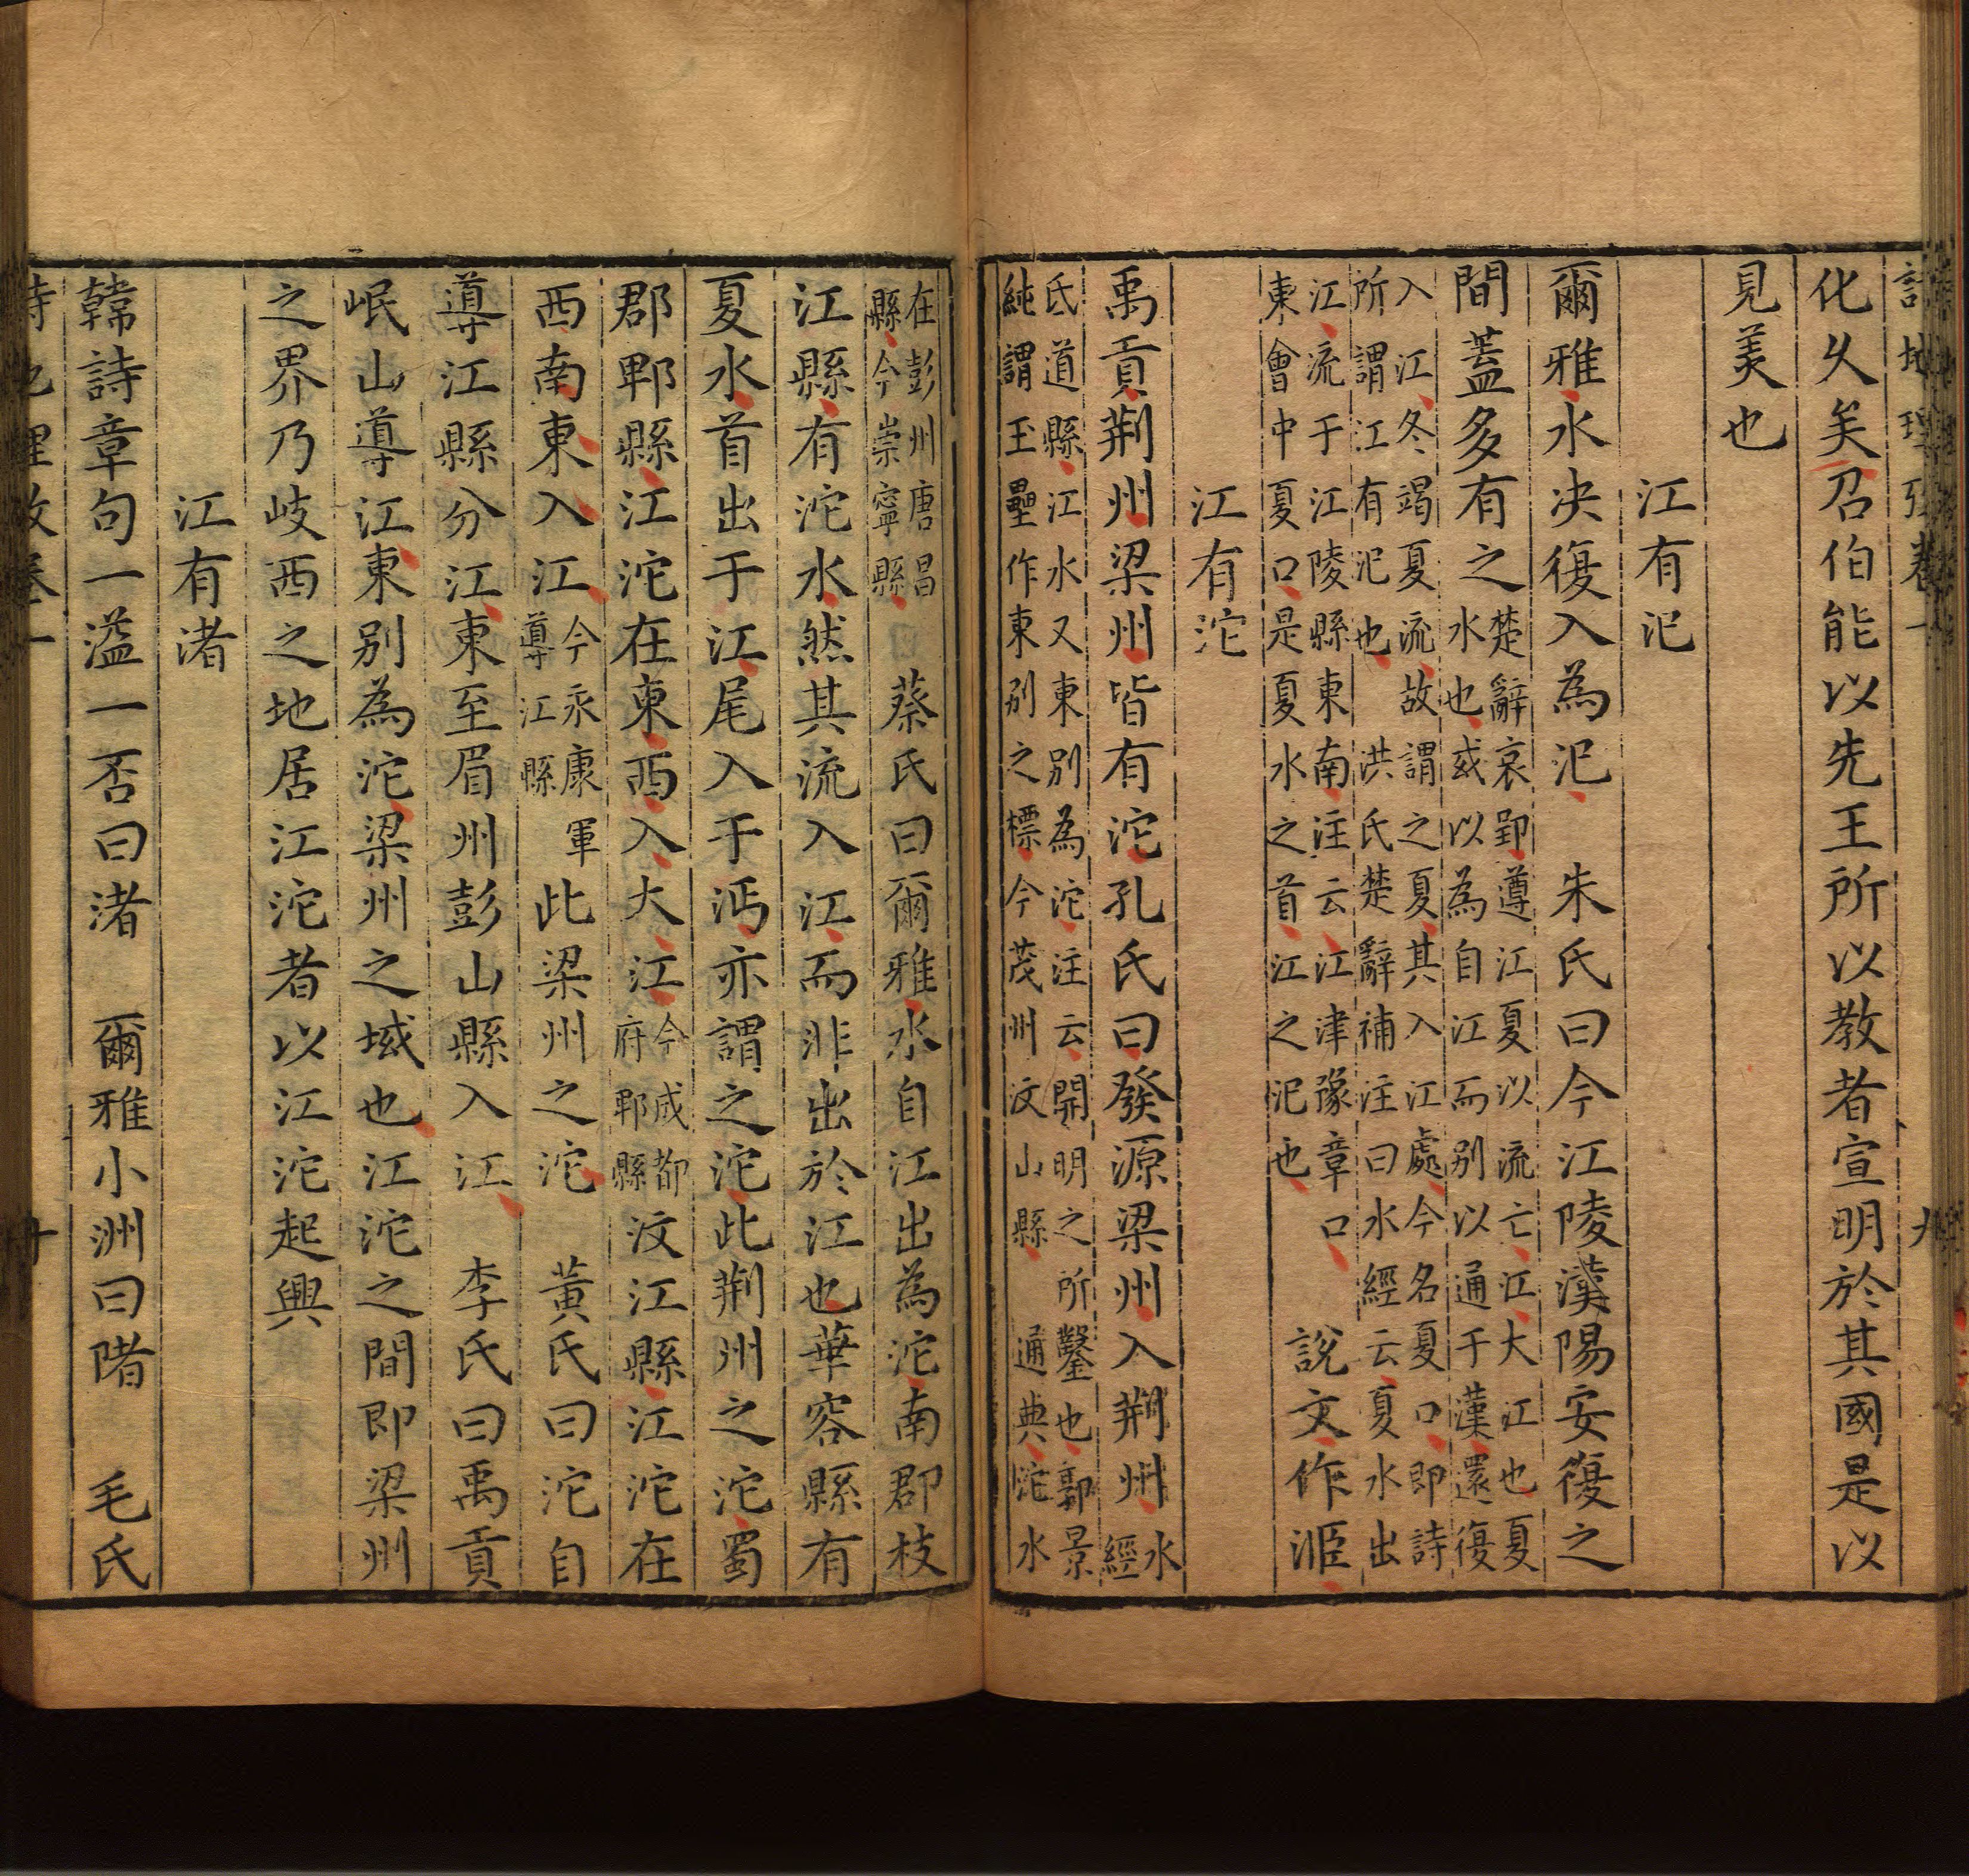 化久矣召伯能以先王所以教者宣明於其國是以
見美也
江有汜
爾雅水决復入為汜　朱氏曰今江陵漢陽安復之
間蓋多有之
楚辭哀郢遵江夏以流亡江大江也夏
水也或以為自江而别以通于漢還復
入江冬竭夏流故謂之夏其入江處今名夏口即詩
所謂江有汜也　洪氏楚辭補注曰水經云夏水出
江流于江陵縣東南注云江津豫章口
東會中夏口是夏水之首江之汜也
說文作洍
江有沱
禹貢荆州梁州皆有沱孔氏曰發源梁州入荆州
水
經
氐道縣江水又東别為沱注云開明之所鑿也郭景
純謂玉壘作東别之標今茂州汶山縣　通典沱水
在彭州唐昌
縣今崇寧縣
蔡氏曰爾雅水自江出為沱南郡枝
江縣有沱水然其流入江而非出於江也華容縣有
夏水首出于江尾入于沔亦謂之沱此荆州之沱蜀
郡郫縣江沱在東西入大江
今成都
府郫縣
汶江縣江沱在
西南東入江
今永康軍
導江縣
此梁州之沱　黄氏曰沱自
導江縣分江東至眉州彭山縣入江　李氏曰禹貢
岷山導江東别為沱梁州之域也江沱之間即梁州
之界乃岐西之地居江沱者以江沱起興
江有渚
韓詩章句一溢一否曰渚　爾雅小洲曰陼　毛氏